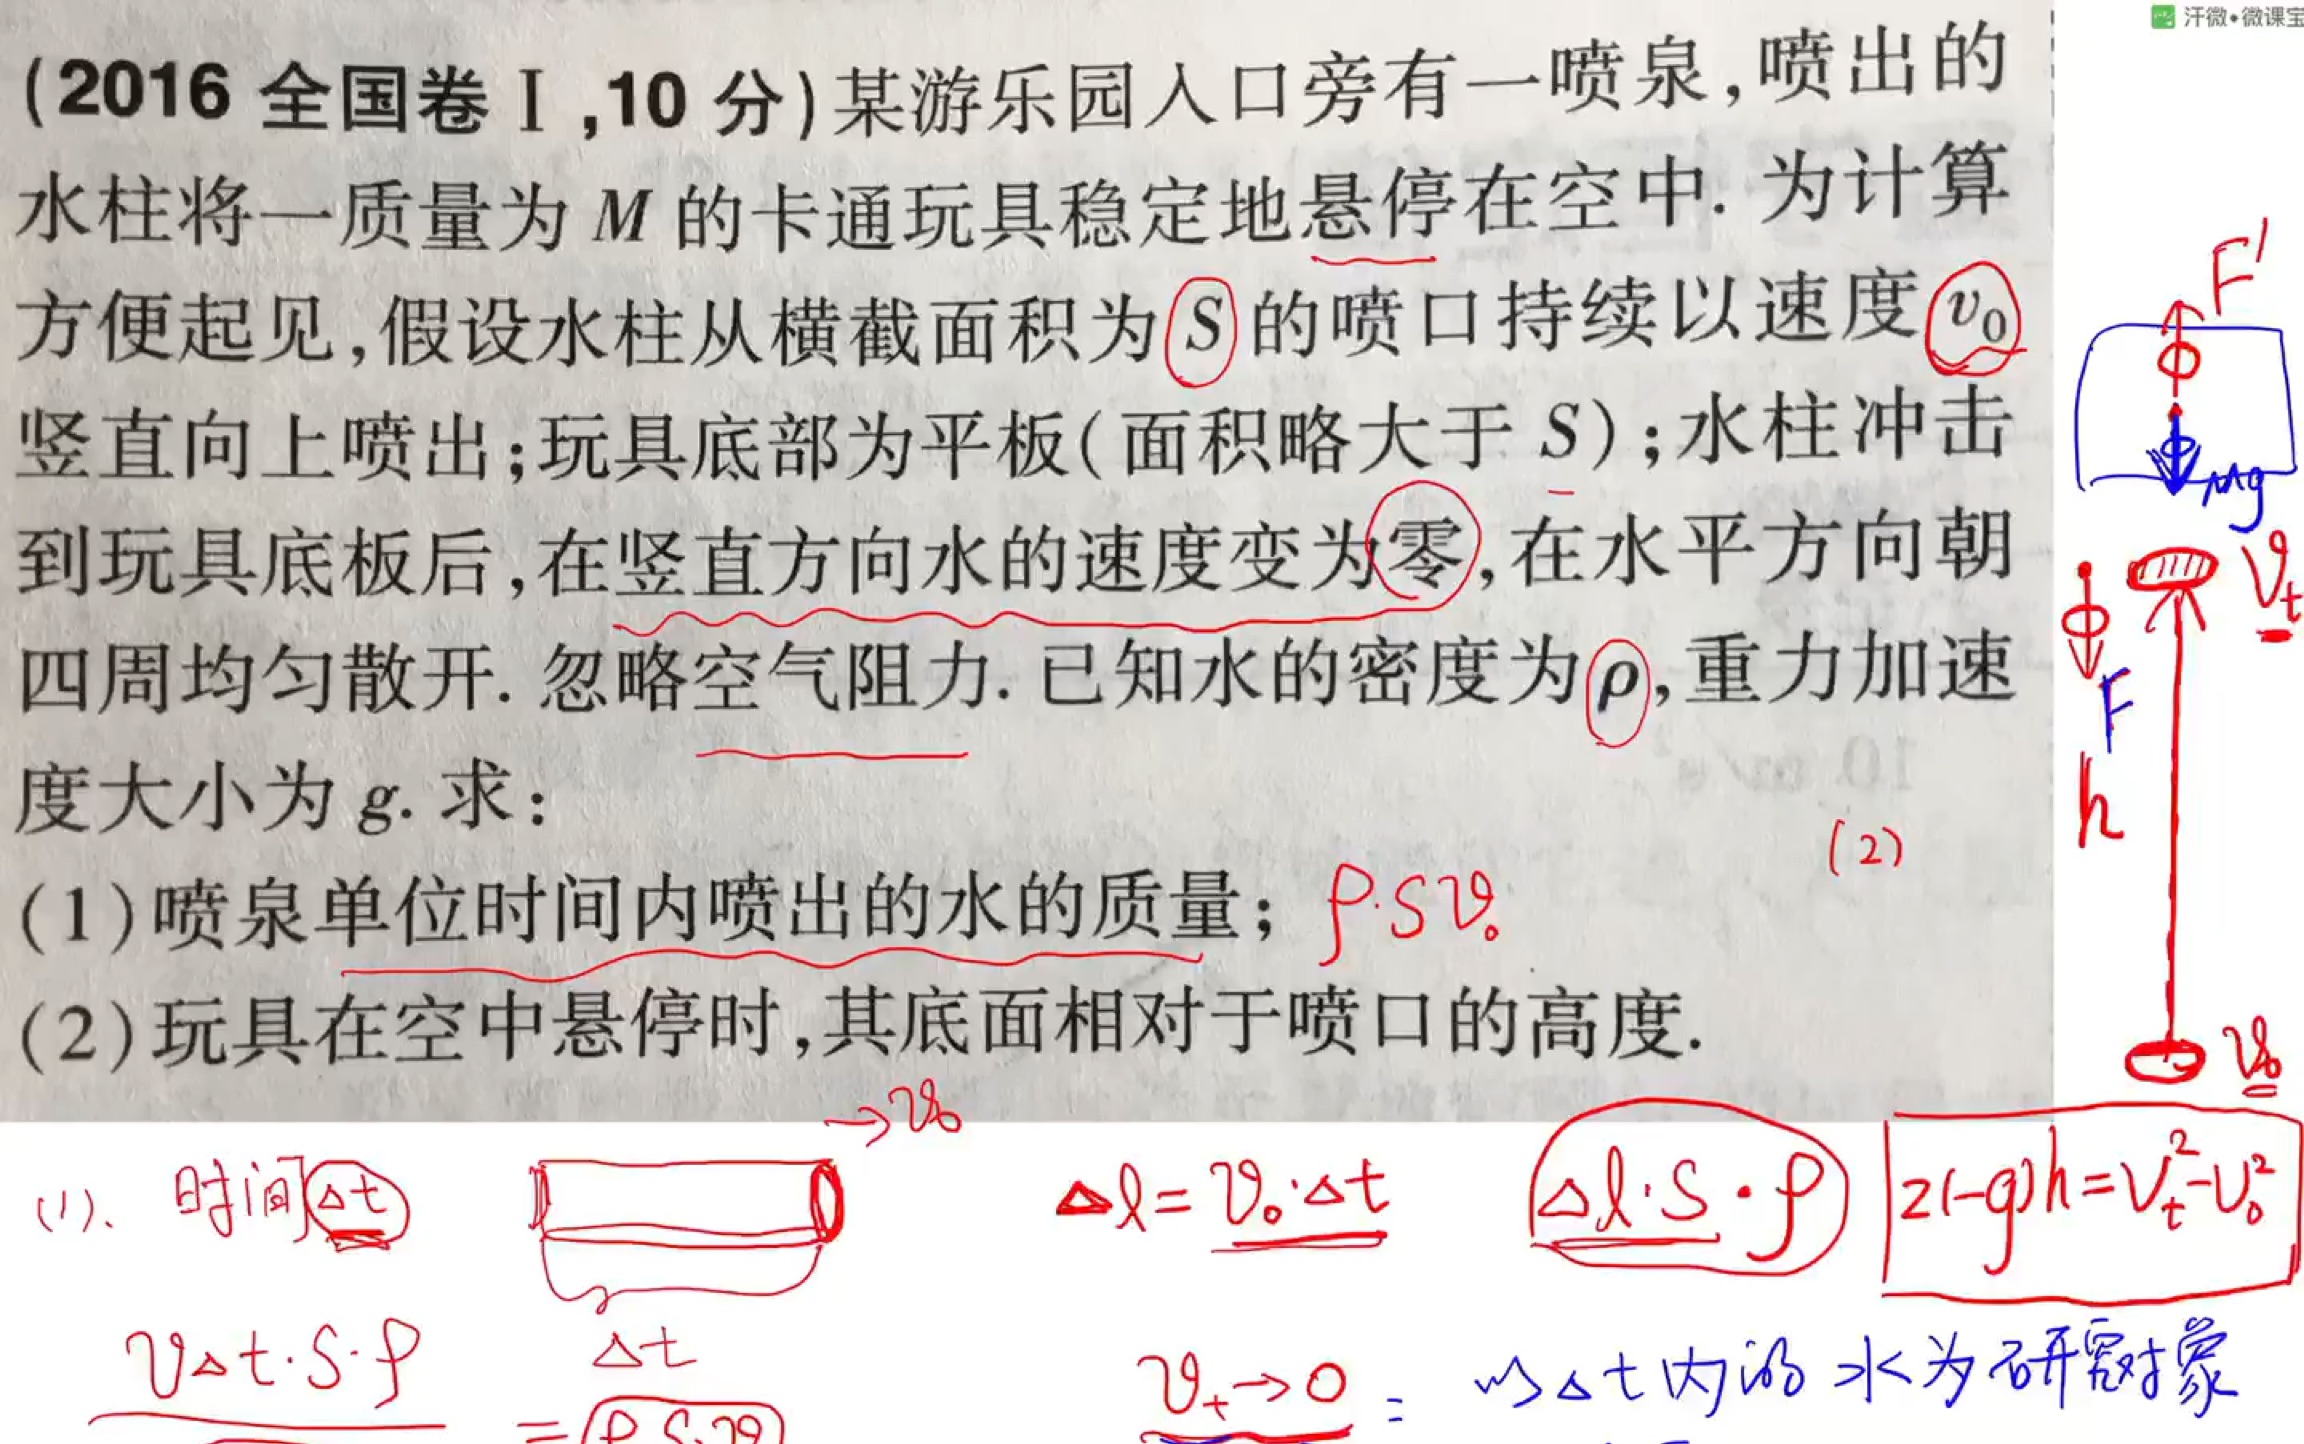 汗微•微课宝
(2016 全国卷Ⅰ,10 分)某游乐园入口旁有一喷泉,喷出的
水柱将一质量为 M 的卡通玩具稳定地悬停在空中. 为计算
方便起见,假设水柱从横截面积为 S 的喷口持续以速度 v₀
竖直向上喷出;玩具底部为平板(面积略大于 S);水柱冲击
到玩具底板后,在竖直方向水的速度变为零,在水平方向朝
四周均匀散开. 忽略空气阻力. 已知水的密度为 ρ,重力加速
度大小为 g. 求:
(1)喷泉单位时间内喷出的水的质量; ρ·Sv₀
(2)
(2)玩具在空中悬停时,其底面相对于喷口的高度.
F′
Mg
v_t
F
h
v₀
→v₀
(1). 时间Δt
Δl=v₀·Δt
Δl·S·ρ
2(-g)h=v_t²-v₀²
vΔt·S·ρ
Δt
v_t→0:
以Δt内的水为研究对象